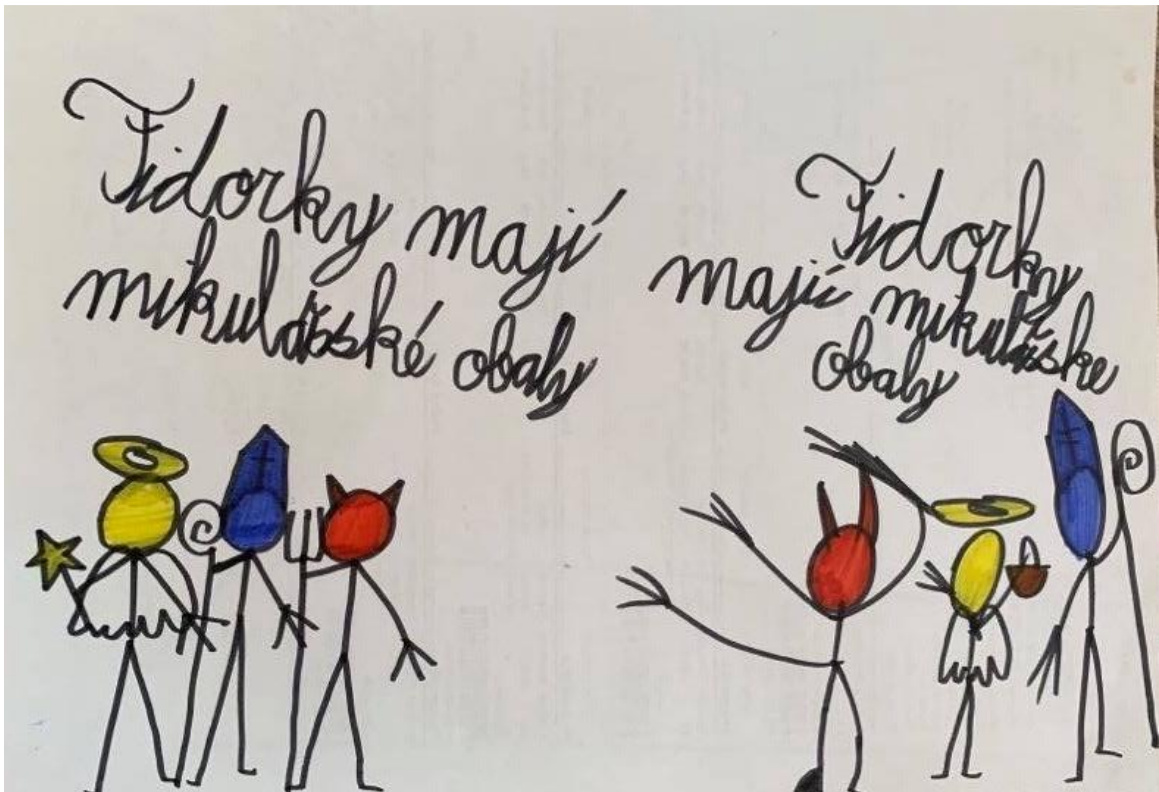 Fidorky mají
mikulášské obaly
Fidorky
mají mikulášske
obaly